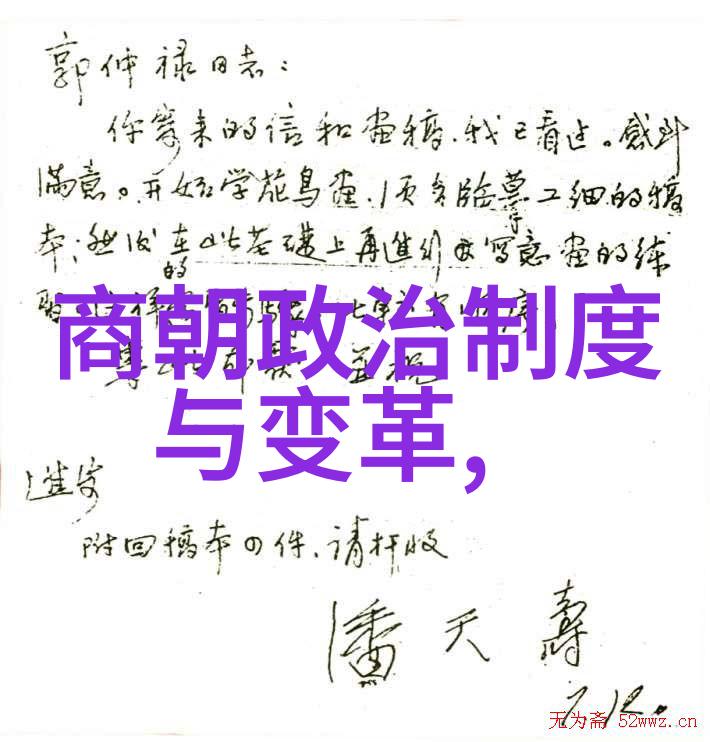 郭仲禄同志：
你寄来的信和画稿，我已看过。感到
满意。开始学花鸟画，须多临摹工细的稿
本；然后在此基础上再进行写意画的练
习的
商朝政治制度
与变革，
进步
附回稿本四件，请检收
潘天寿
7.12.
无为斋 52wwz.cn